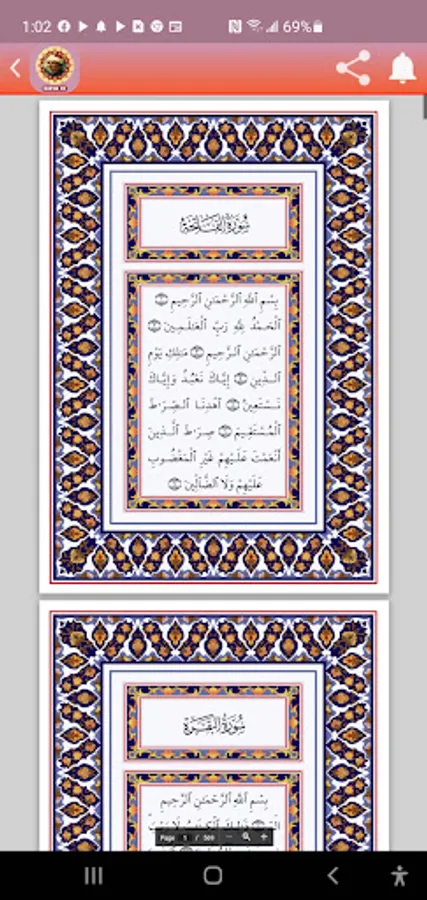 1:02
69%
سُورَةُ الفَاتِحَةِ
بِسْمِ ٱللَّهِ ٱلرَّحْمَٰنِ ٱلرَّحِيمِ
ٱلْحَمْدُ لِلَّهِ رَبِّ ٱلْعَٰلَمِينَ
ٱلرَّحْمَٰنِ ٱلرَّحِيمِ مَٰلِكِ يَوْمِ
ٱلدِّينِ إِيَّاكَ نَعْبُدُ وَإِيَّاكَ
نَسْتَعِينُ ٱهْدِنَا ٱلصِّرَٰطَ
ٱلْمُسْتَقِيمَ صِرَٰطَ ٱلَّذِينَ
أَنْعَمْتَ عَلَيْهِمْ غَيْرِ ٱلْمَغْضُوبِ
عَلَيْهِمْ وَلَا ٱلضَّآلِّينَ
سُورَةُ البَقَرَةِ
بِسْمِ ٱللَّهِ ٱلرَّحْمَٰنِ ٱلرَّحِيمِ
Page 1 / 569